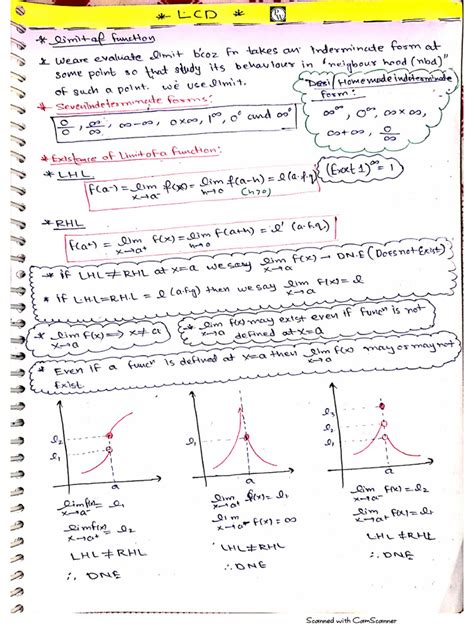 * LCD *
* Limit of Function
* We are evaluate limit b'coz Fn takes an Inderminate form at
some point so that study its behaviour in 'neighbour hood (nbd)"
of such a point. we use limit.
"Desi/Homemade indeterminate
form:-
∞^∞, 0^∞, ∞×∞,
∞+∞, 0/∞
* Seven indeterminate forms:
0/0, ∞/∞, ∞-∞, 0×∞, 1^∞, 0° and ∞°
* Existence of Limit of a function:
(Exact 1)^∞ = 1
* LHL
f(a⁻) = lim x→a⁻ f(x) = lim h→0 f(a-h) = l (a.f.q) (h>0)
* RHL
f(a⁺) = lim x→a⁺ f(x) = lim h→0 f(a+h) = l' (a.f.q)
* if LHL ≠ RHL at x=a we say lim x→a f(x) → D.N.E (Does not Exist)
* if LHL=RHL = l (a.f.q) then we say lim x→a f(x) = l
* lim x→a f(x) ⇒ x≠a
* lim x→a f(x) may exist even if funcⁿ is not
defined at x=a
* Even if a funcⁿ is defined at x=a then lim x→a f(x) may or may not
Exist.
l₂
l₁
a
l₁
a
l₃
l₂
l₁
a
lim x→a⁻ f(x) = l₁
lim x→a⁺ f(x) = l₂
LHL ≠ RHL
∴ DNE
lim x→a⁺ f(x) = l₁
lim x→a⁻ f(x) = ∞
LHL ≠ RHL
∴ DNE
lim x→a⁻ f(x) = l₂
lim x→a⁺ f(x) = l₁
LHL ≠ RHL
∴ DNE
Scanned with CamScanner